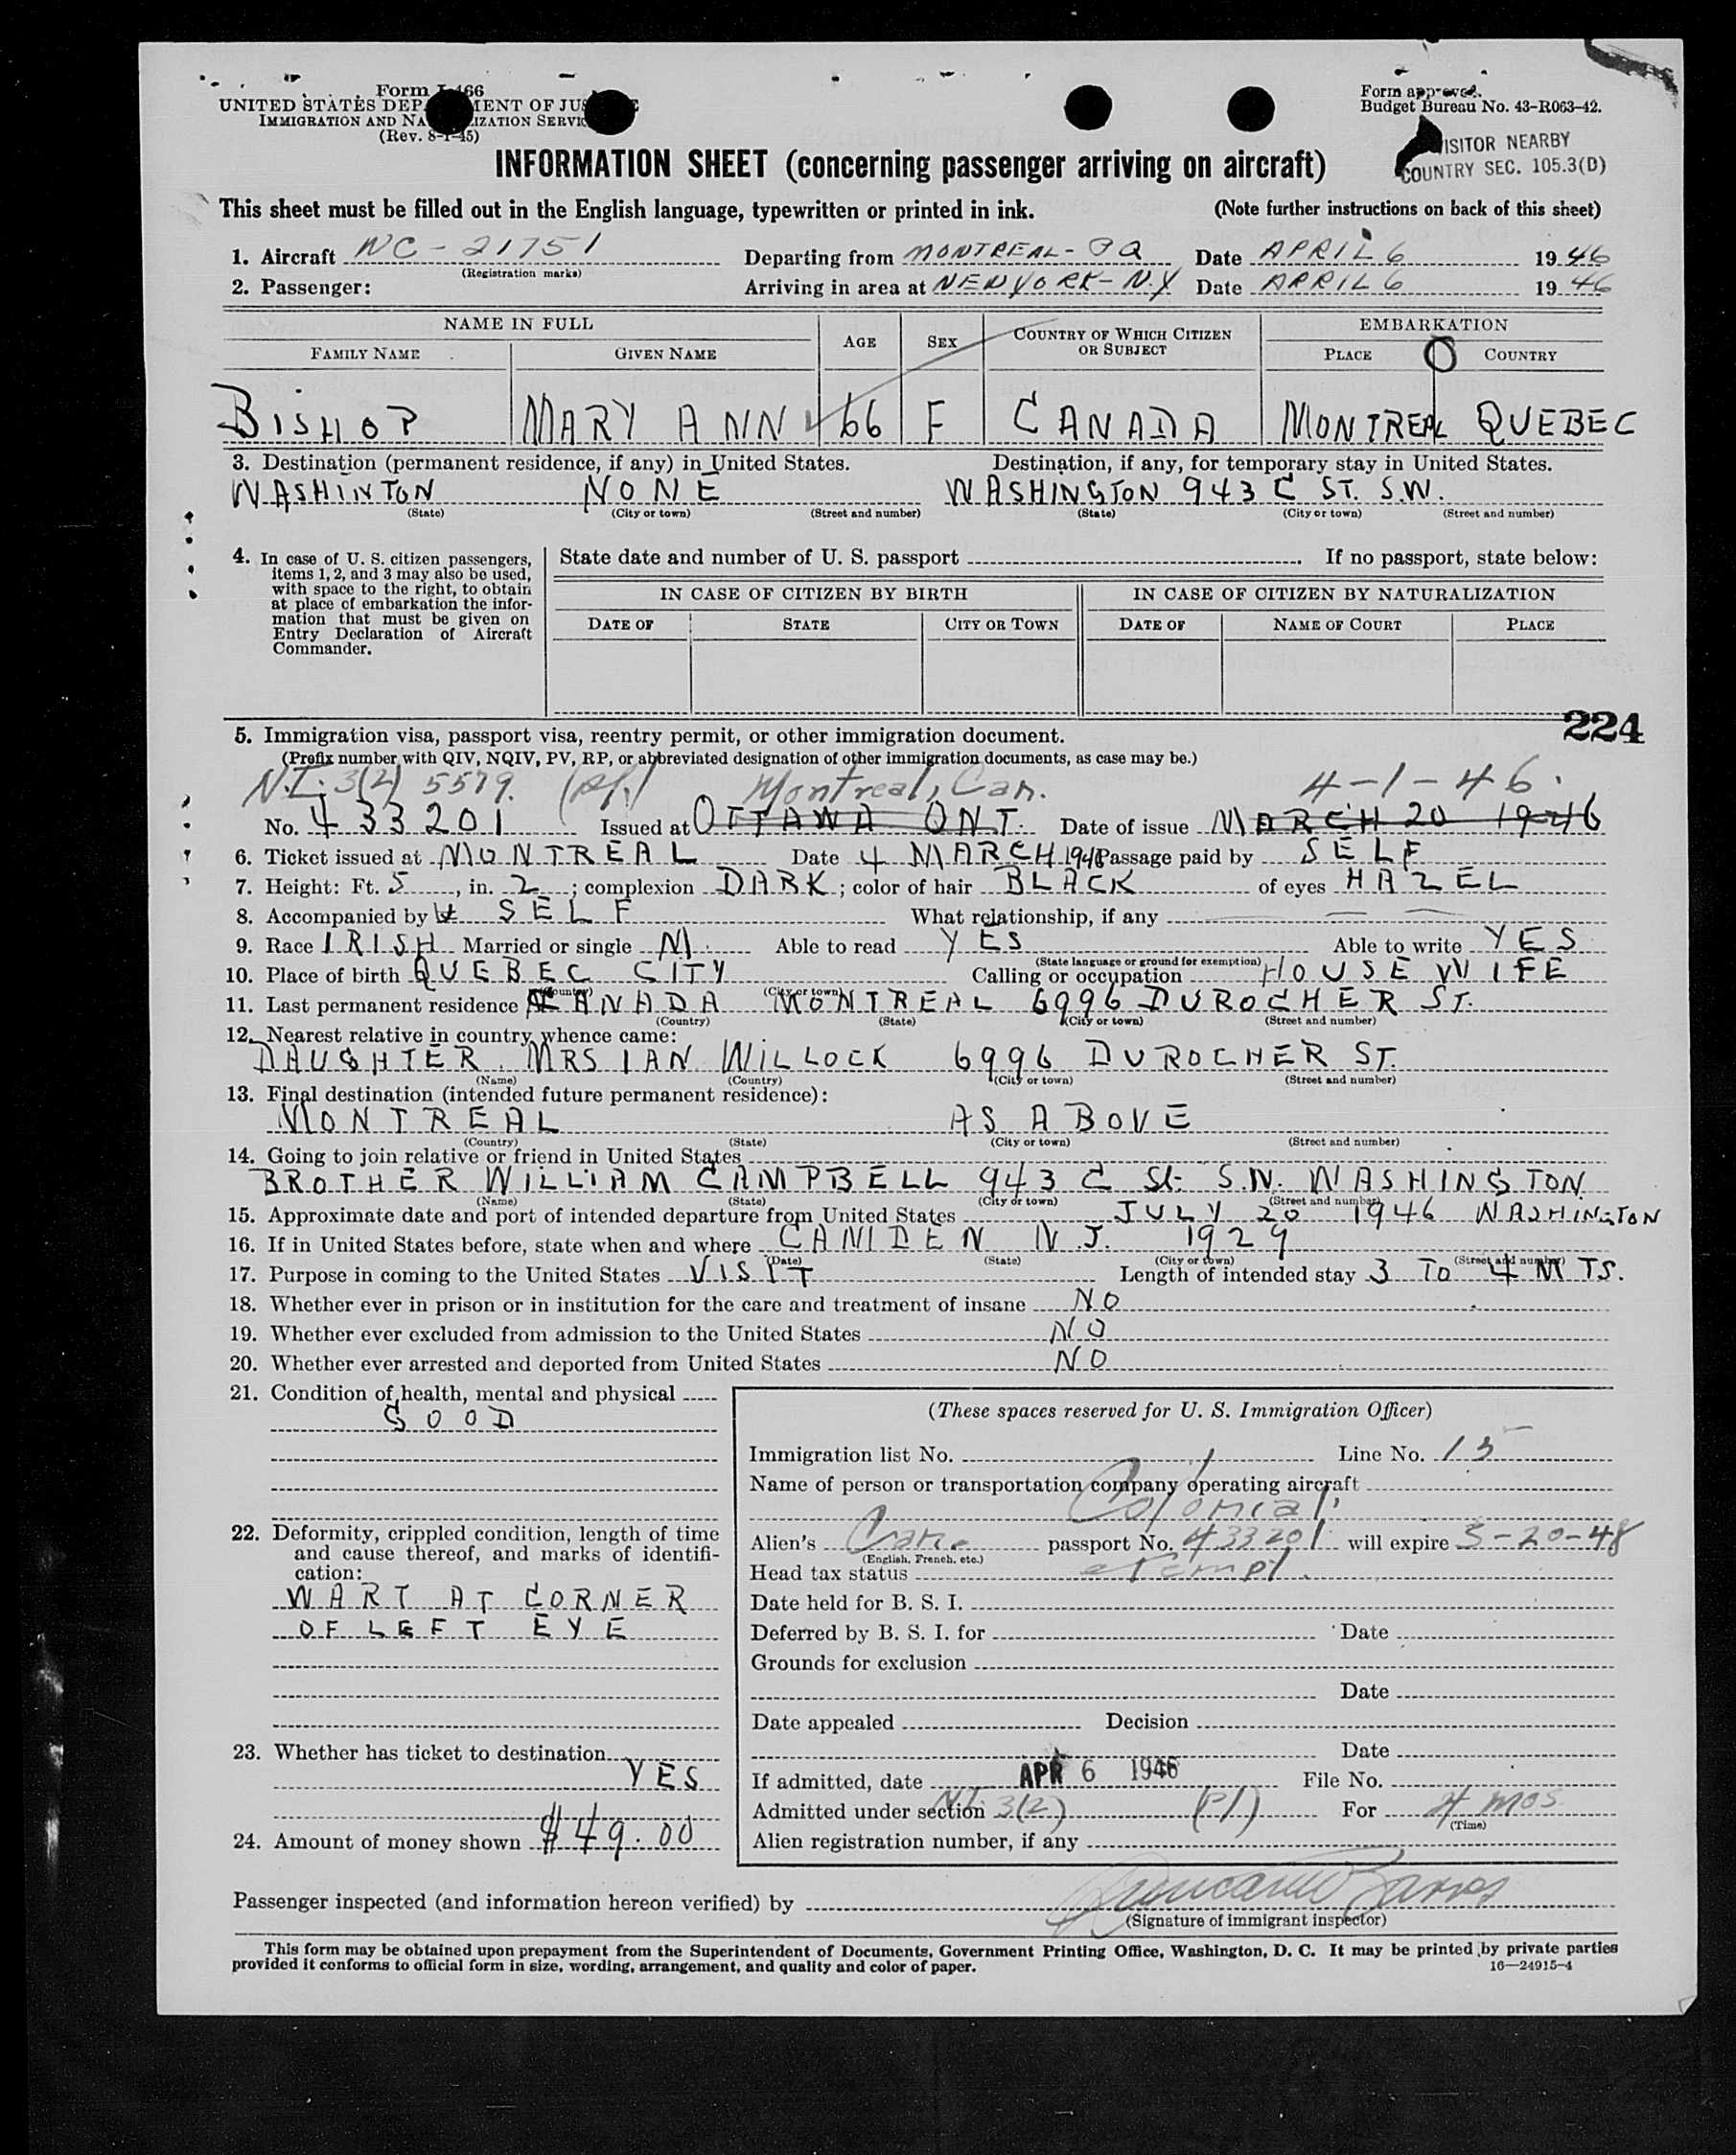 Form I-466
UNITED STATES DEPARTMENT OF JUSTICE
IMMIGRATION AND NATURALIZATION SERVICE
(Rev. 8-1-45)
Form approved.
Budget Bureau No. 43-R063-42.
VISITOR NEARBY
COUNTRY SEC. 105.3(D)
INFORMATION SHEET (concerning passenger arriving on aircraft)
This sheet must be filled out in the English language, typewritten or printed in ink. (Note further instructions on back of this sheet)
1. Aircraft NC-21751 Departing from MONTREAL-PQ Date APRIL 6 1946
(Registration marks)
2. Passenger: Arriving in area at NEWYORK-N.Y Date APRIL 6 1946
NAME IN FULL AGE SEX COUNTRY OF WHICH CITIZEN OR SUBJECT EMBARKATION
FAMILY NAME GIVEN NAME PLACE COUNTRY
BISHOP MARY ANN 66 F CANADA MONTREAL QUEBEC
3. Destination (permanent residence, if any) in United States. Destination, if any, for temporary stay in United States.
WASHINTON NONE WASHINGTON 943 C ST. S.W.
(State) (City or town) (Street and number) (State) (City or town) (Street and number)
4. In case of U. S. citizen passengers, items 1, 2, and 3 may also be used, with space to the right, to obtain at place of embarkation the information that must be given on Entry Declaration of Aircraft Commander.
State date and number of U. S. passport . If no passport, state below:
IN CASE OF CITIZEN BY BIRTH IN CASE OF CITIZEN BY NATURALIZATION
DATE OF STATE CITY OR TOWN DATE OF NAME OF COURT PLACE
224
5. Immigration visa, passport visa, reentry permit, or other immigration document.
(Prefix number with QIV, NQIV, PV, RP, or abbreviated designation of other immigration documents, as case may be.)
N.I. 3(2) 5579. Montreal, Can. 4-1-46.
No. 433201 Issued at OTTAWA ONT. Date of issue MARCH 20 1946
6. Ticket issued at MONTREAL Date 4 MARCH 1946 Passage paid by SELF
7. Height: Ft. 5, in. 2; complexion DARK; color of hair BLACK of eyes HAZEL
8. Accompanied by SELF What relationship, if any
9. Race IRISH Married or single M. Able to read YES Able to write YES
(State language or ground for exemption)
10. Place of birth QUEBEC CITY Calling or occupation HOUSEWIFE
(Country) (City or town)
11. Last permanent residence CANADA MONTREAL 6996 DUROCHER ST.
(Country) (State) (City or town) (Street and number)
12. Nearest relative in country whence came:
DAUGHTER. MRS IAN WILLOCK 6996 DUROCHER ST.
(Name) (Country) (City or town) (Street and number)
13. Final destination (intended future permanent residence):
MONTREAL AS ABOVE
(Country) (State) (City or town) (Street and number)
14. Going to join relative or friend in United States
BROTHER WILLIAM CAMPBELL 943 C St. S.W. WASHINGTON
(Name) (State) (City or town) (Street and number)
15. Approximate date and port of intended departure from United States JULY 20 1946 WASHINGTON
16. If in United States before, state when and where CAMDEN N.J. 1929
(Date) (State) (City or town) (Street and number)
17. Purpose in coming to the United States VISIT Length of intended stay 3 TO 4 MTS.
18. Whether ever in prison or in institution for the care and treatment of insane NO
19. Whether ever excluded from admission to the United States NO
20. Whether ever arrested and deported from United States NO
21. Condition of health, mental and physical
GOOD
22. Deformity, crippled condition, length of time and cause thereof, and marks of identification:
WART AT CORNER
OF LEFT EYE
23. Whether has ticket to destination
YES
24. Amount of money shown $49.00
(These spaces reserved for U. S. Immigration Officer)
Immigration list No. Line No. 15
Name of person or transportation company operating aircraft
Colonial
Alien's Can. passport No. 433201 will expire 3-20-48
(English, French, etc.)
Head tax status exempt.
Date held for B. S. I.
Deferred by B. S. I. for Date
Grounds for exclusion
Date
Date appealed Decision
Date
If admitted, date APR 6 1946 File No.
Admitted under section N.I. 3(2) (P1) For 4 mos
(Time)
Alien registration number, if any
Passenger inspected (and information hereon verified) by
(Signature of immigrant inspector)
This form may be obtained upon prepayment from the Superintendent of Documents, Government Printing Office, Washington, D. C. It may be printed by private parties
provided it conforms to official form in size, wording, arrangement, and quality and color of paper. 16—24915-4